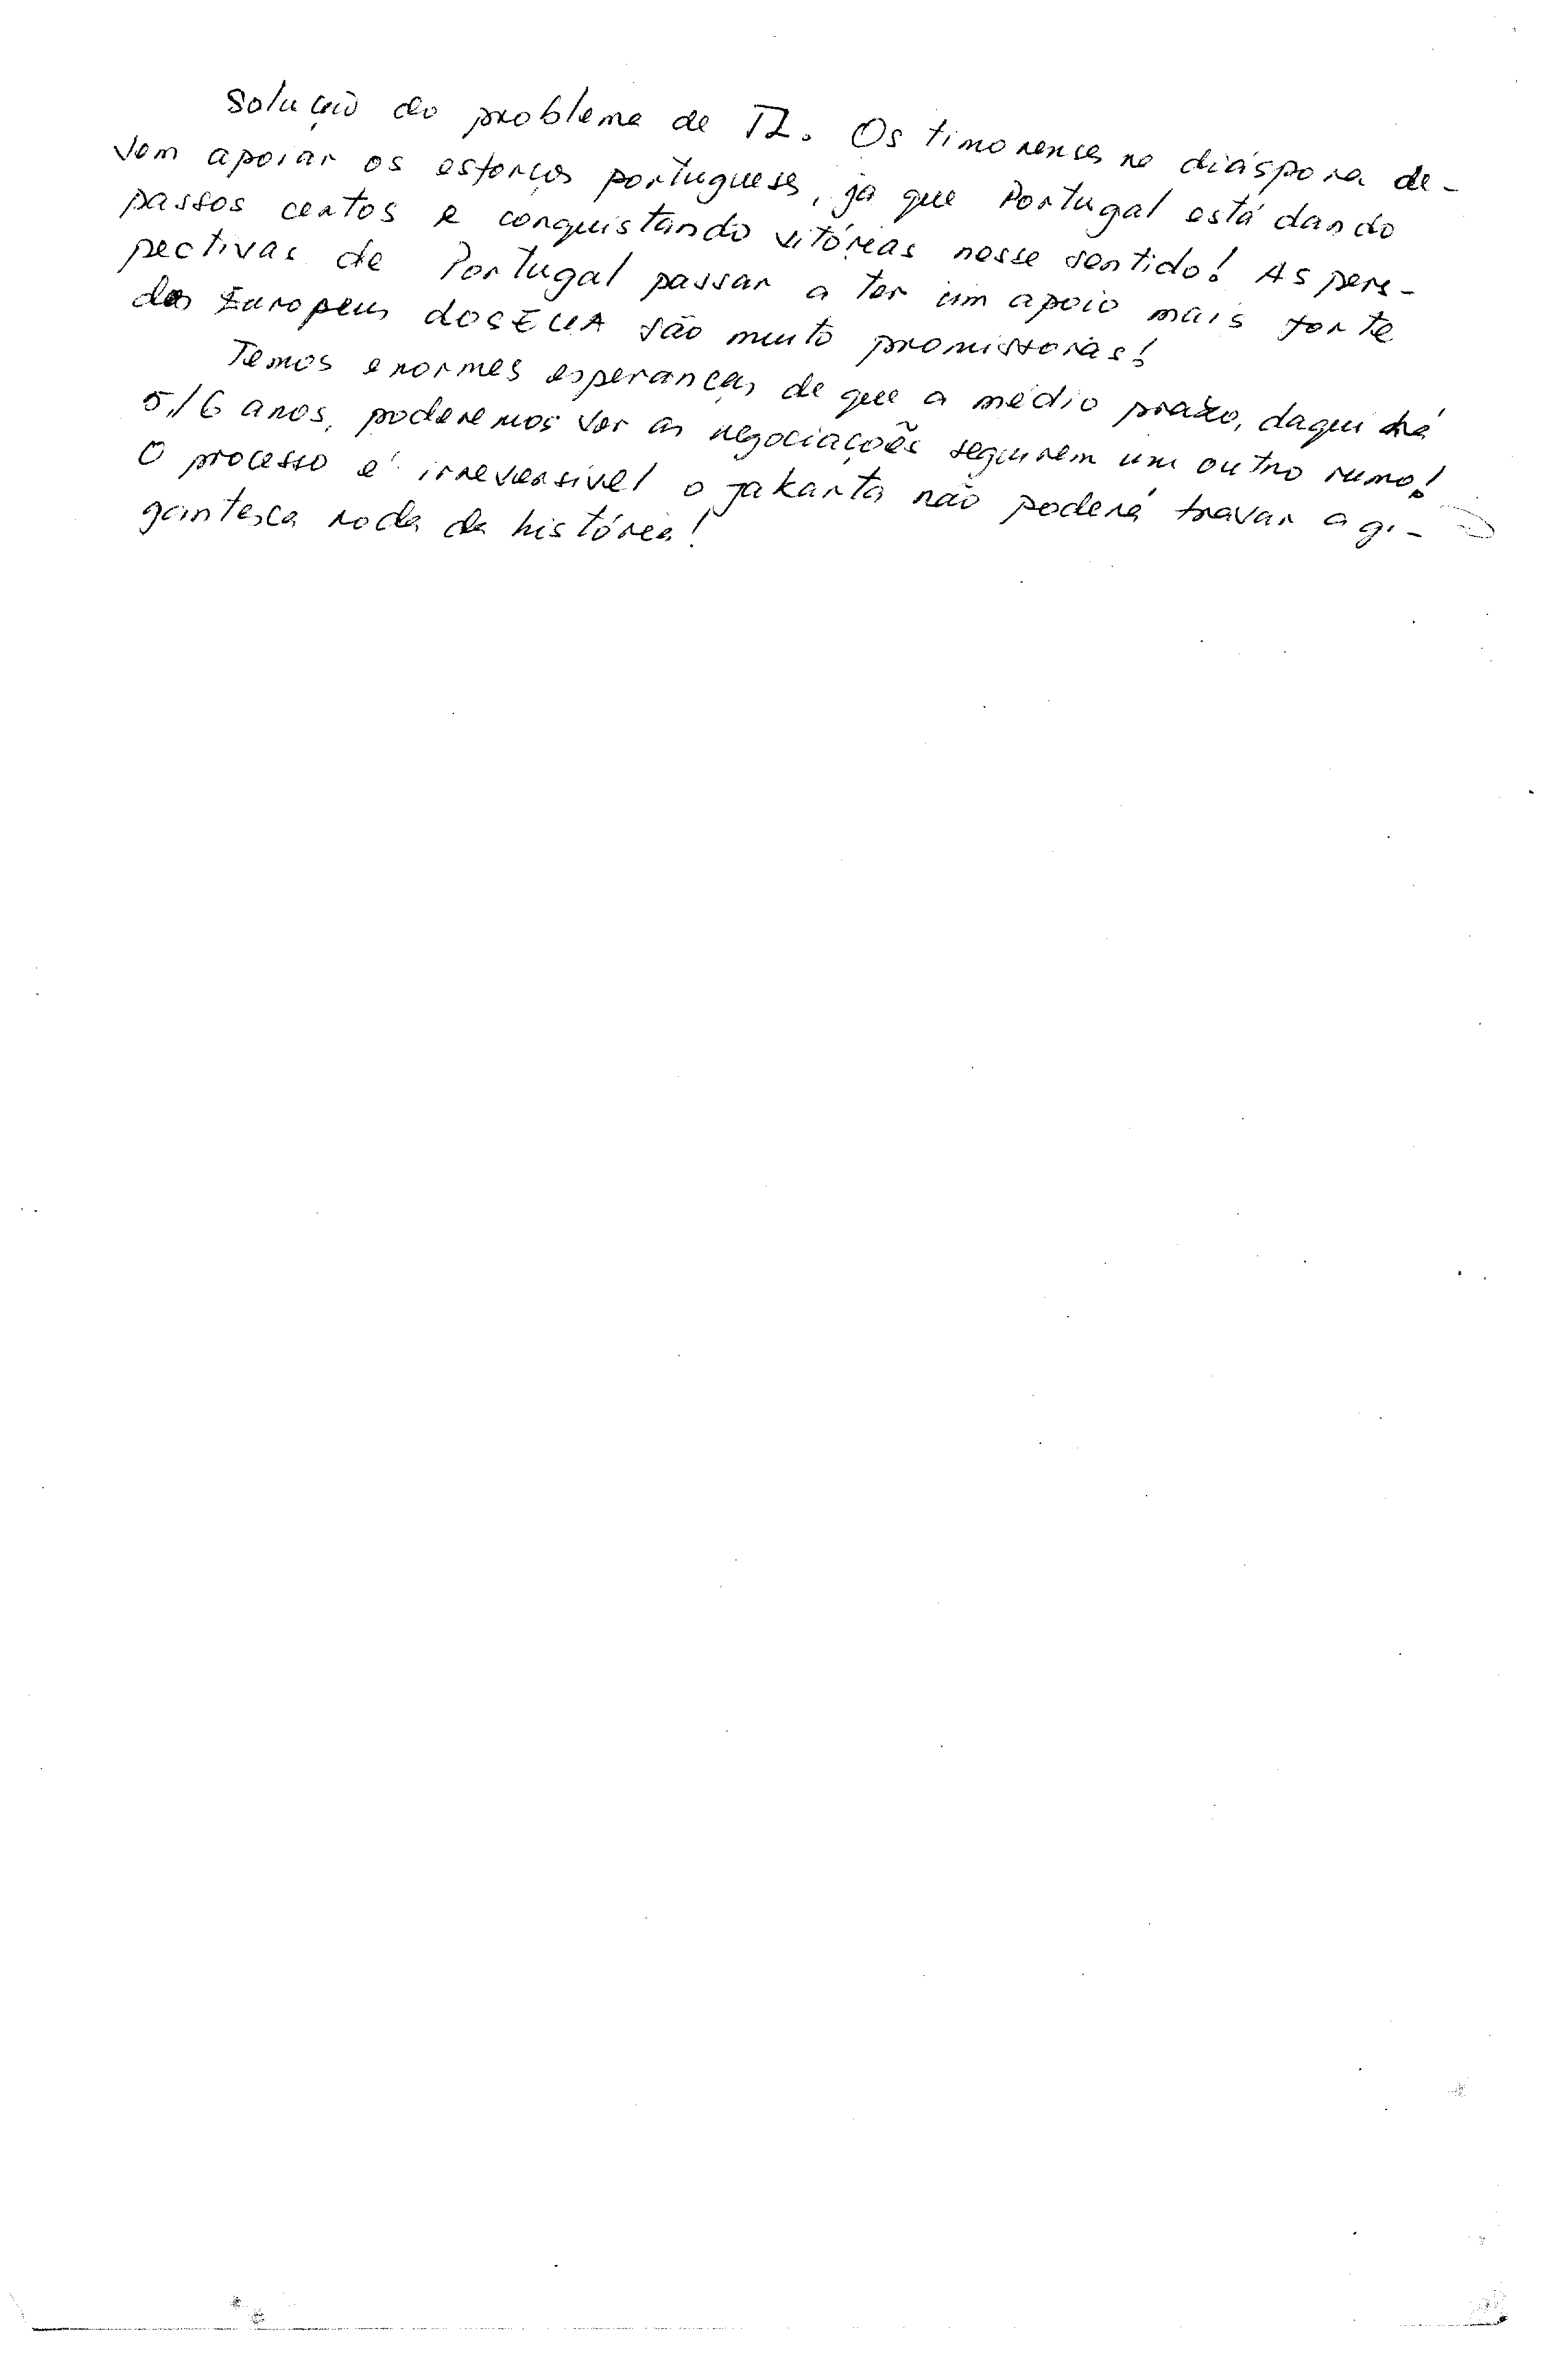 solução do problema de TL. Os timorenses na diáspora de-
vem apoiar os esforços portugueses, já que Portugal está dando
passos certos e conquistando vitórias nesse sentido! As pers-
pectivas de Portugal passar a ter um apoio mais forte
dos Europeus dos EUA são muito promissoras!
Temos enormes esperanças de que a médio prazo, daqui há
5//6 anos, poderemos ver as negociações seguirem um outro rumo!
O processo é irreversível e Jakarta não poderá travar a gi-
gantesca roda da história!